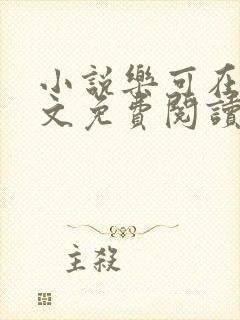 小說樂可在
文免費閱讀
主殺